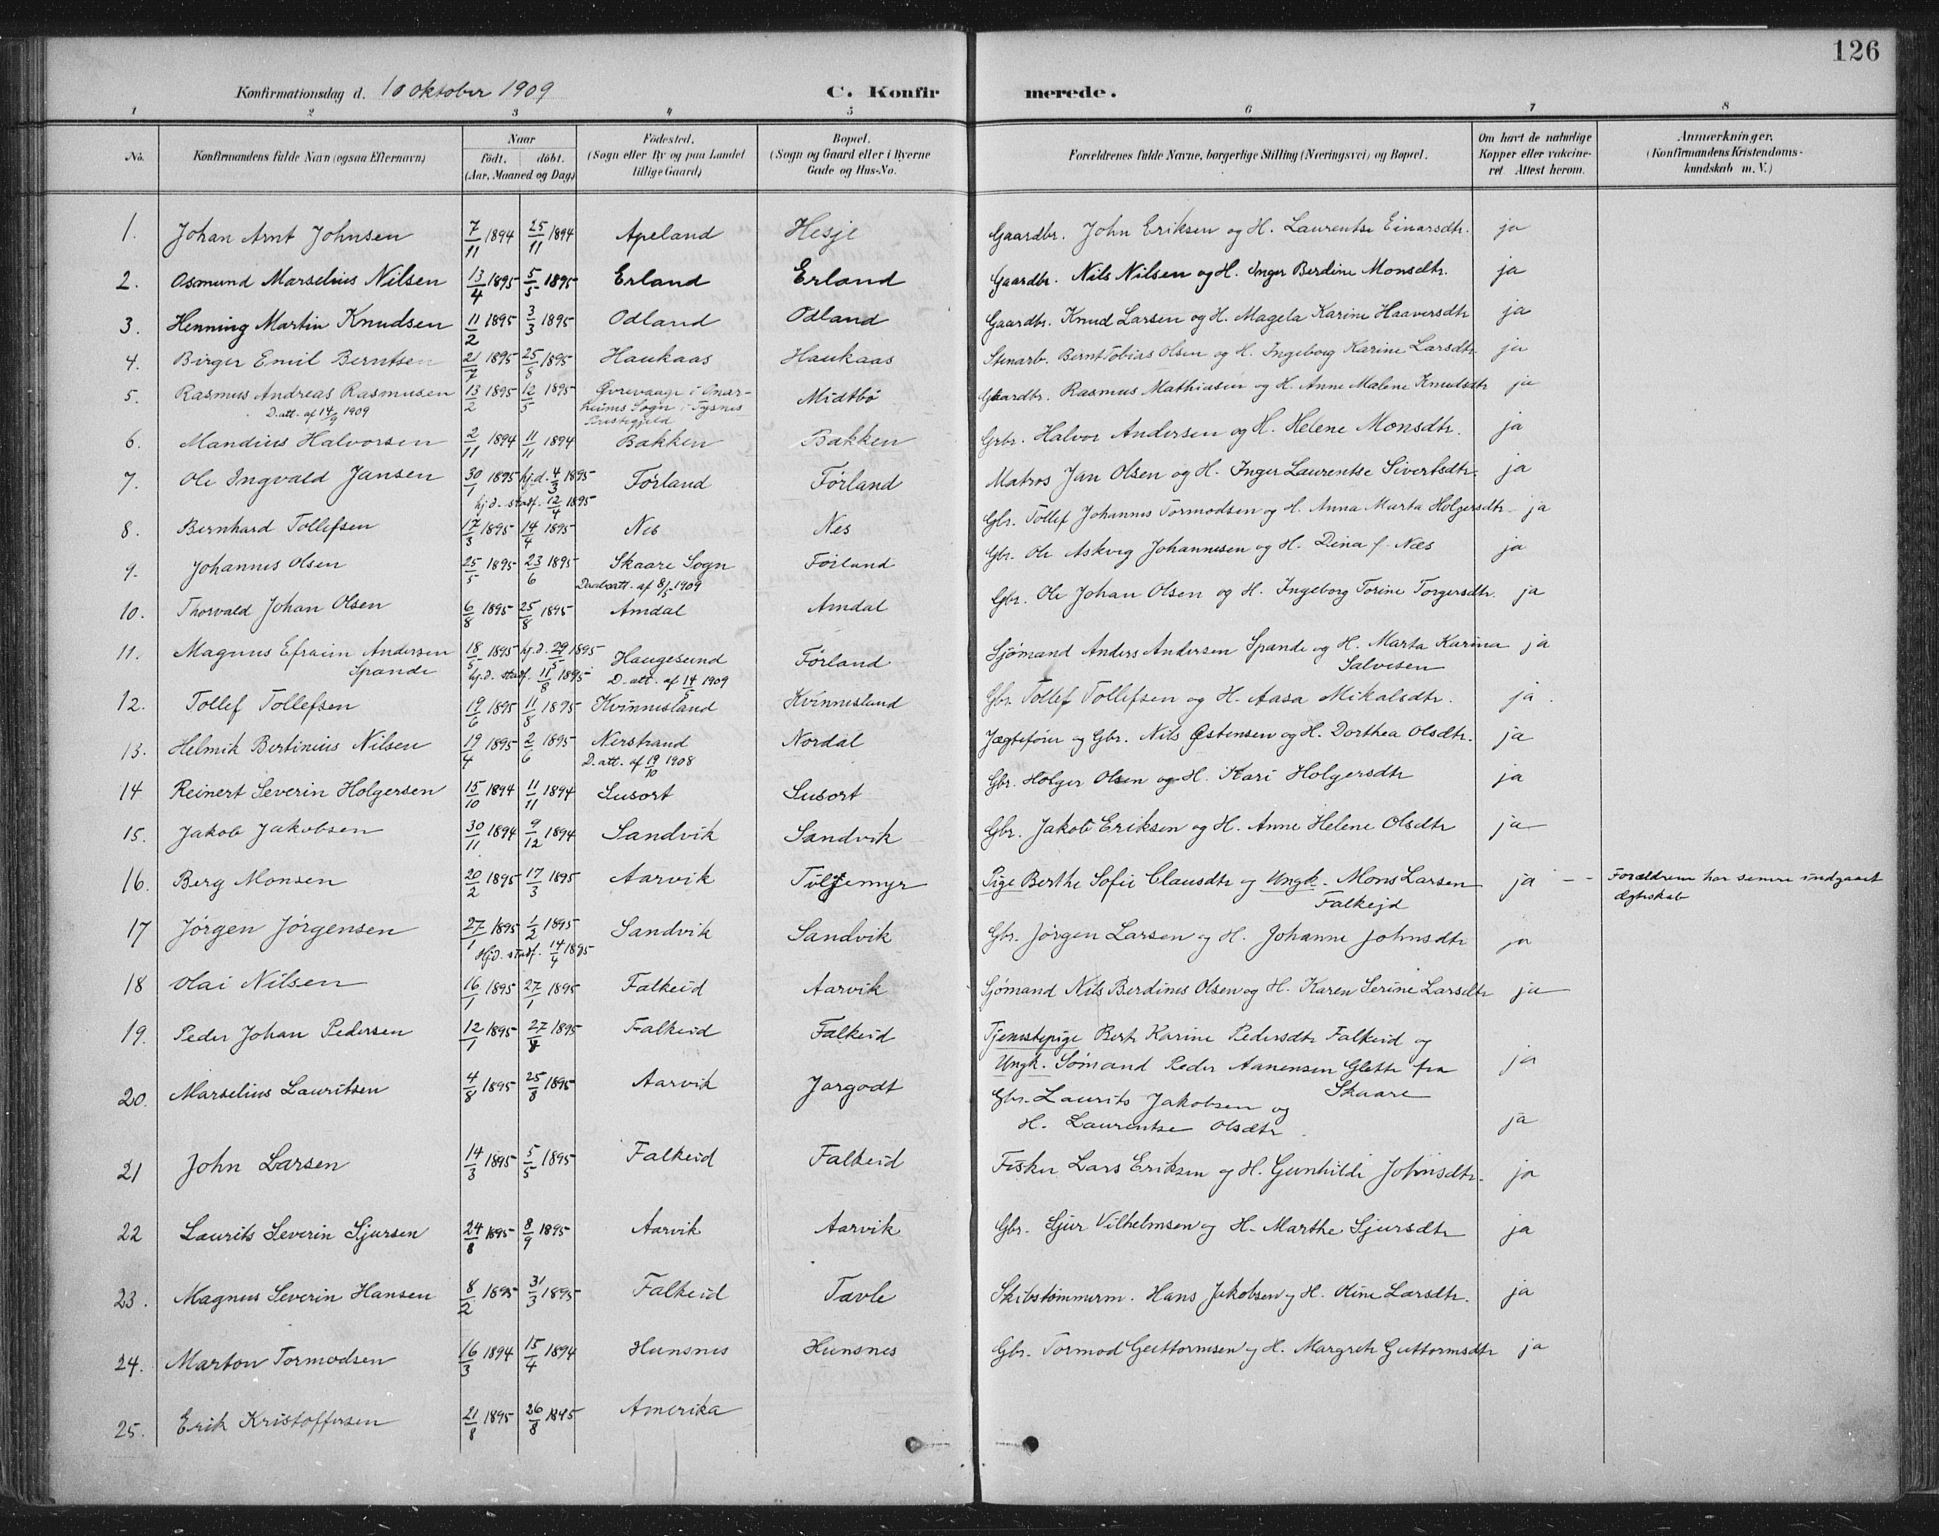 126
Konfirmationsdag d. 10 oktober 1909 C. Konfirmerede.
1 2 3 4 5 6 7 8
No. Konfirmandens fulde Navn (ogsaa Efternavn) Naar født. døbt. (Aar, Maaned og Dag) Fødested. (Sogn eller By og paa Landet tillige Gaard) Bopæl. (Sogn og Gaard eller i Byerne Gade og Hus-No. Forældrenes fulde Navne, borgerlige Stilling (Næringsvei) og Bopæl. Om havt de naturlige Kopper eller vakcineret Attest herom. Anmærkninger. (Konfirmandens Kristendomskundskab m. V.)
1. Johan Arnt Johnsen 7/11 1894 25/11 1894 Apeland Hesje Gaardbr. John Eriksen og H. Laurentse Einarsdtr. ja
2. Osmund Marselius Nilsen 13/4 1895 5/5 1895 Erland Erland Gaardbr. Nils Nilsen og H. Inger Berdine Monsdtr. ja
3. Henning Martin Knudsen 11/2 1895 3/3 1895 Odland Odland Gaardbr. Knud Larsen og H. Magela Karine Haaversdtr ja
4. Birger Emil Berntsen 21/7 1895 25/8 1895 Haukaas Haukaas Stenarb. Bernt Tobias Olsen og H. Ingeborg Karine Larsdtr ja
5. Rasmus Andreas Rasmussen 13/2 1895 12/5 1895 i Onar- Midtbø Gaardbr. Rasmus Mathiasen og H. Anne Malene Knudsdtr ja
D. att. af 14/9 1909 heims Sogn i Tysnes
Prestegjeld
6. Mandius Halvorsen 2/11 1894 11/11 1894 Bakken Bakken Grbr. Halvor Andersen og H. Helene Monsdtr. ja
7. Ole Ingvald Jansen 30/1 1895 hj.d. 4/3 1895 Førland Førland Matros Jan Olsen og H. Inger Laurentse Sivertsdtr. ja
hj.d. stadf. 12/4 1895
8. Bernhard Tollefsen 17/3 1895 14/4 1895 Nes Nes Gbr. Tollef Johannes Tormodsen og H. Anna Marta Holgersdtr ja
9. Johannes Olsen 25/5 1895 23/6 1895 Skaare Sogn Førland Gbr. Ole Askvig Johannesen og H. Dina f. Næs ja
Daabsatt. af 8/5 1909
10. Thorvald Johan Olsen 6/8 1895 25/8 1895 Amdal Amdal Gbr. Ole Johan Olsen og H. Ingeborg Torine Torgersdtr. ja
11. Magnus Efraim Andersen 18/5 1895 hj.d. 29/5 1895 Haugesund Førland Sjømand Anders Andersen Spande og H. Marta Karina ja
Spande hj.d. stadf. 11/8 1895 D. att. af 14/5 1909 Salvesen
12. Tollef Tollefsen 19/6 1895 11/8 1895 Kvinnesland Kvinnesland Gbr. Tollef Tollefsen og H. Aasa Mikalsdtr. ja
13. Helmik Bertinius Nilsen 19/4 1895 2/6 1895 Nerstrand Nordal Jægtefører og Gbr. Nils Østensen og H. Dorthea Olsdtr. ja
D. att. af 19/10 1908
14 Reinert Severin Holgersen 15/10 1894 11/11 1894 Susort Susort Gbr. Holger Olsen og H. Kari Holgersdtr ja
15. Jakob Jakobsen 30/11 1894 9/12 1894 Sandvik Sandvik Gbr. Jakob Eriksen og H. Anne Helene Olsdtr ja
16. Berg Monsen 20/2 1895 17/3 1895 Aarvik Pige Berthe Sofie Clausdtr og Ungk. Mons Larsen ja Forældrene har senere indgaaet
Falkejd ægteskab
17 Jørgen Jørgensen 27/1 1895 1/2 1895 Sandvik Sandvik Gbr. Jørgen Larsen og H. Johanne Johnsdtr ja
Hj.d. stadf. 14/4 1895
18 Olai Nilsen 16/1 1895 27/1 1895 Falkeid Aarvik Sjømand Nils Berdines Olsen og H. Karen Serine Larsdtr ja
19. Peder Johan Pedersen 12/1 1895 27/8 1895 Falkeid Falkeid Tjenestepige Berte Karine Pedersdtr Falkeid og
Ungk. Sømand Peder Aanensen Glette fra ja
Skaare
20. Marselius Lauritsen 4/8 1895 25/8 1895 Aarvik Jargodt Gbr. Laurits Jakobsen og
H. Laurentse Olsdtr ja
21 John Larsen 14/3 1895 5/5 1895 Falkeid Falkeid Fisker Lars Eriksen og H. Gunhilde Johnsdtr. ja
22 Laurits Severin Sjursen 24/8 1895 8/9 1895 Aarvik Aarvik Gbr. Sjur Vilhelmsen og H. Marthe Sjursdtr ja
23. Magnus Severin Hansen 8/2 1895 31/3 1895 Falkeid Tavle Skibstømmerm. Hans Jakobsen og H. Oline Larsdtr. ja
24. Marton Tormodsen 16/3 1894 15/4 1894 Hunsnes Hunsnes Gbr. Tormod Guttormsen og H. Margrete Guttormsdtr ja
25. Erik Kristoffersen 21/8 1895 26/8 1895 Amerika